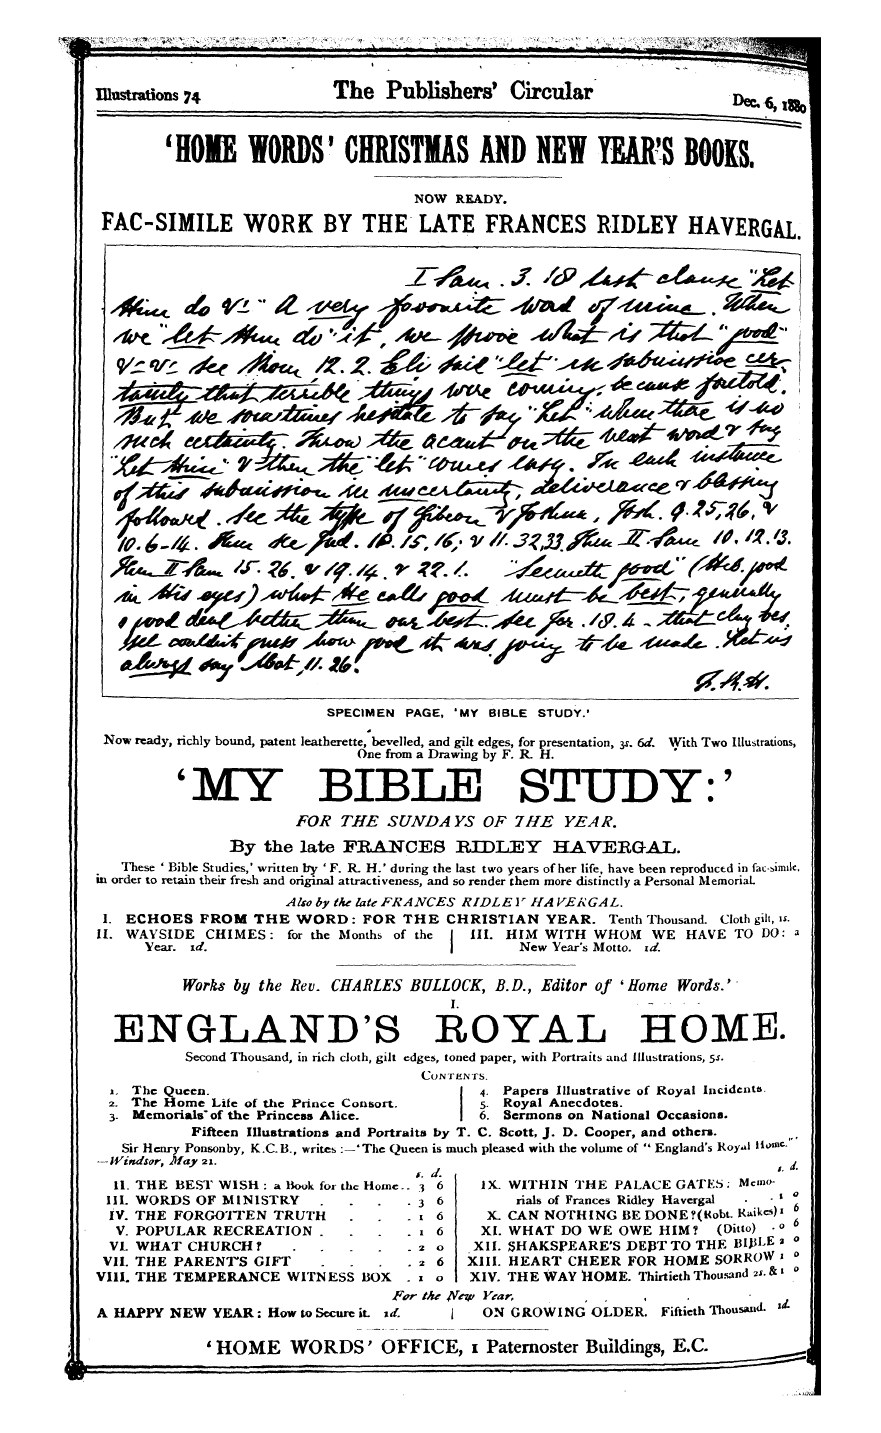 Illustrations 74
The Publishers' Circular
Dec. 6, 1880
'HOME WORDS' CHRISTMAS AND NEW YEAR'S BOOKS.
NOW READY.
FAC-SIMILE WORK BY THE LATE FRANCES RIDLEY HAVERGAL.
I Sam. 3. 18 last clause "Let
Him do &c" A very favourite word of mine. When
we "let Him do" it, we prove what is that "good"
&c &c See Rom. 12. 2. Eli said "let" in submissive cer-
tainty that terrible things were coming, because foretold.
But we sometimes hesitate to say "Let" when there is no
such certainty. Throw the accent on the next word & say
"Let Him" & then the "let" comes easy. In each instance
of this submission in uncertainty, deliverance & blessing
followed. See the type of Gibeon & Joshua, Josh. 9. 25, 26, &
10. 6-14. Then see Jud. 10. 15, 16; & 11. 32, 33. Then II Sam 10. 12. 13.
Then II Sam 15. 26. & 19. 14. & 22. 1. "Seemeth good" (Heb. good
in His eyes) what He calls good must be best; generally
a good deal better than our best. See Jer. 18. 4 - that clay ves
sel couldn't guess how good it was going to be made. Let us
always say Mat, 11. 26.
F. R. H.
SPECIMEN PAGE, 'MY BIBLE STUDY.'
Now ready, richly bound, patent leatherette, bevelled, and gilt edges, for presentation, 3s. 6d. With Two Illustrations,
One from a Drawing by F. R. H.
'MY BIBLE STUDY:'
FOR THE SUNDAYS OF THE YEAR.
By the late FRANCES RIDLEY HAVERGAL.
These 'Bible Studies,' written by 'F. R. H.' during the last two years of her life, have been reproduced in fac-simile,
in order to retain their fresh and original attractiveness, and so render them more distinctly a Personal Memorial.
Also by the late FRANCES RIDLEY HAVERGAL.
I. ECHOES FROM THE WORD: FOR THE CHRISTIAN YEAR. Tenth Thousand. Cloth gilt, 1s.
II. WAYSIDE CHIMES: for the Months of the
Year. 1d.
III. HIM WITH WHOM WE HAVE TO DO: a
New Year's Motto. 1d.
Works by the Rev. CHARLES BULLOCK, B.D., Editor of 'Home Words.'
I.
ENGLAND'S ROYAL HOME.
Second Thousand, in rich cloth, gilt edges, toned paper, with Portraits and Illustrations, 5s.
CONTENTS.
1. The Queen.
2. The Home Life of the Prince Consort.
3. Memorials of the Princess Alice.
4. Papers Illustrative of Royal Incidents.
5. Royal Anecdotes.
6. Sermons on National Occasions.
Fifteen Illustrations and Portraits by T. C. Scott, J. D. Cooper, and others.
Sir Henry Ponsonby, K.C.B., writes:—'The Queen is much pleased with the volume of "England's Royal Home."'
—Windsor, May 21.
s. d.
II. THE BEST WISH: a Book for the Home.. 3 6
III. WORDS OF MINISTRY . . . . 3 6
IV. THE FORGOTTEN TRUTH . . . . 1 6
V. POPULAR RECREATION . . . . . 1 6
VI. WHAT CHURCH? . . . . . 2 0
VII. THE PARENT'S GIFT . . . . 2 6
VIII. THE TEMPERANCE WITNESS BOX . 1 0
s. d.
IX. WITHIN THE PALACE GATES: Memo-
rials of Frances Ridley Havergal . . 1 0
X. CAN NOTHING BE DONE? (Robt. Raikes) 1 6
XI. WHAT DO WE OWE HIM? (Ditto) . 0 6
XII. SHAKSPEARE'S DEBT TO THE BIBLE 2 0
XIII. HEART CHEER FOR HOME SORROW 1 0
XIV. THE WAY HOME. Thirtieth Thousand 2s. & 1 0
For the New Year.
A HAPPY NEW YEAR: How to Secure it. 1d.
ON GROWING OLDER. Fiftieth Thousand. 1d.
'HOME WORDS' OFFICE, 1 Paternoster Buildings, E.C.